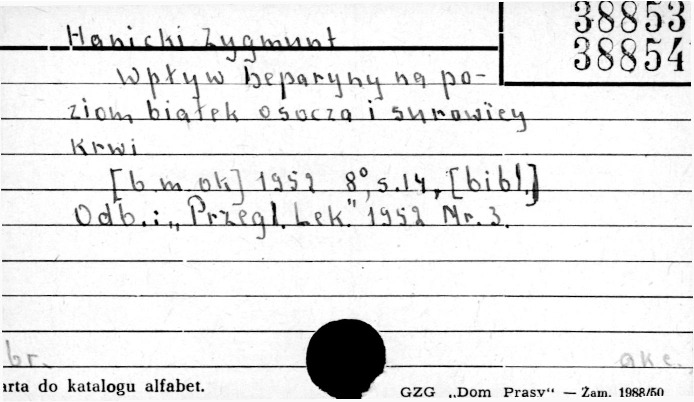 38853
38854
Hanicki Zygmunt
Wpływ heparyny na po-
ziom białek osocza i surowicy
krwi
[b.m.ok] 1952 8°, s.14, [bibl.]
Odb.: „Przegl. Lek." 1952 Nr. 3.
br. akc.
arta do katalogu alfabet.
GZG „Dom Prasy“ — Zam. 1988/50